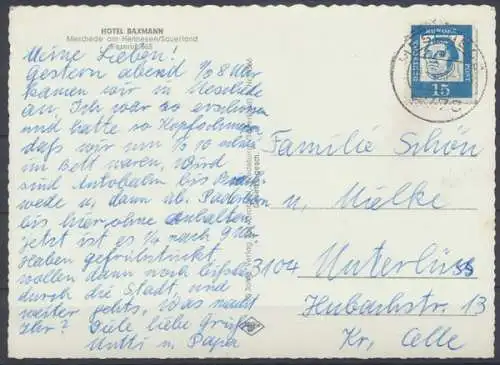 HOTEL BAXMANN
Meschede am Hennesee/Sauerland
Meine Lieben!
Gestern abend 1/2 8 Uhr
kamen wir in Meschede
an. Ich war so erschossen
und hatte so Kopfschmerzen
daß wir um 1/2 10 schon
im Bett waren. Wir
sind Autobahn bis
wede u, dann ab. Paderborn
bis hier ohne Anhalten
Jetzt ist es 1/4 nach 9 Uhr
Haben gefrühstückt
wollen dann noch bißchen
durch die Stadt, und
weiter gehts. Was macht
Ihr? Viele liebe Grüße
Mutti u Papa
DEUTSCHE BUNDESPOST
15
Familie Schön
u, Mielke
3104 Unterlüss
Hubachstr. 13
Kr, Celle